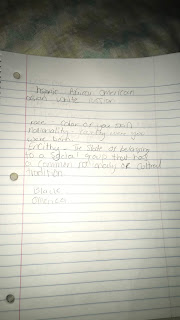 Asian White
race - color of your skin
Nationality - country where you
were born
Ethnity - The State of belonging
to a social group that has
a common national or cultural
tradition
Black